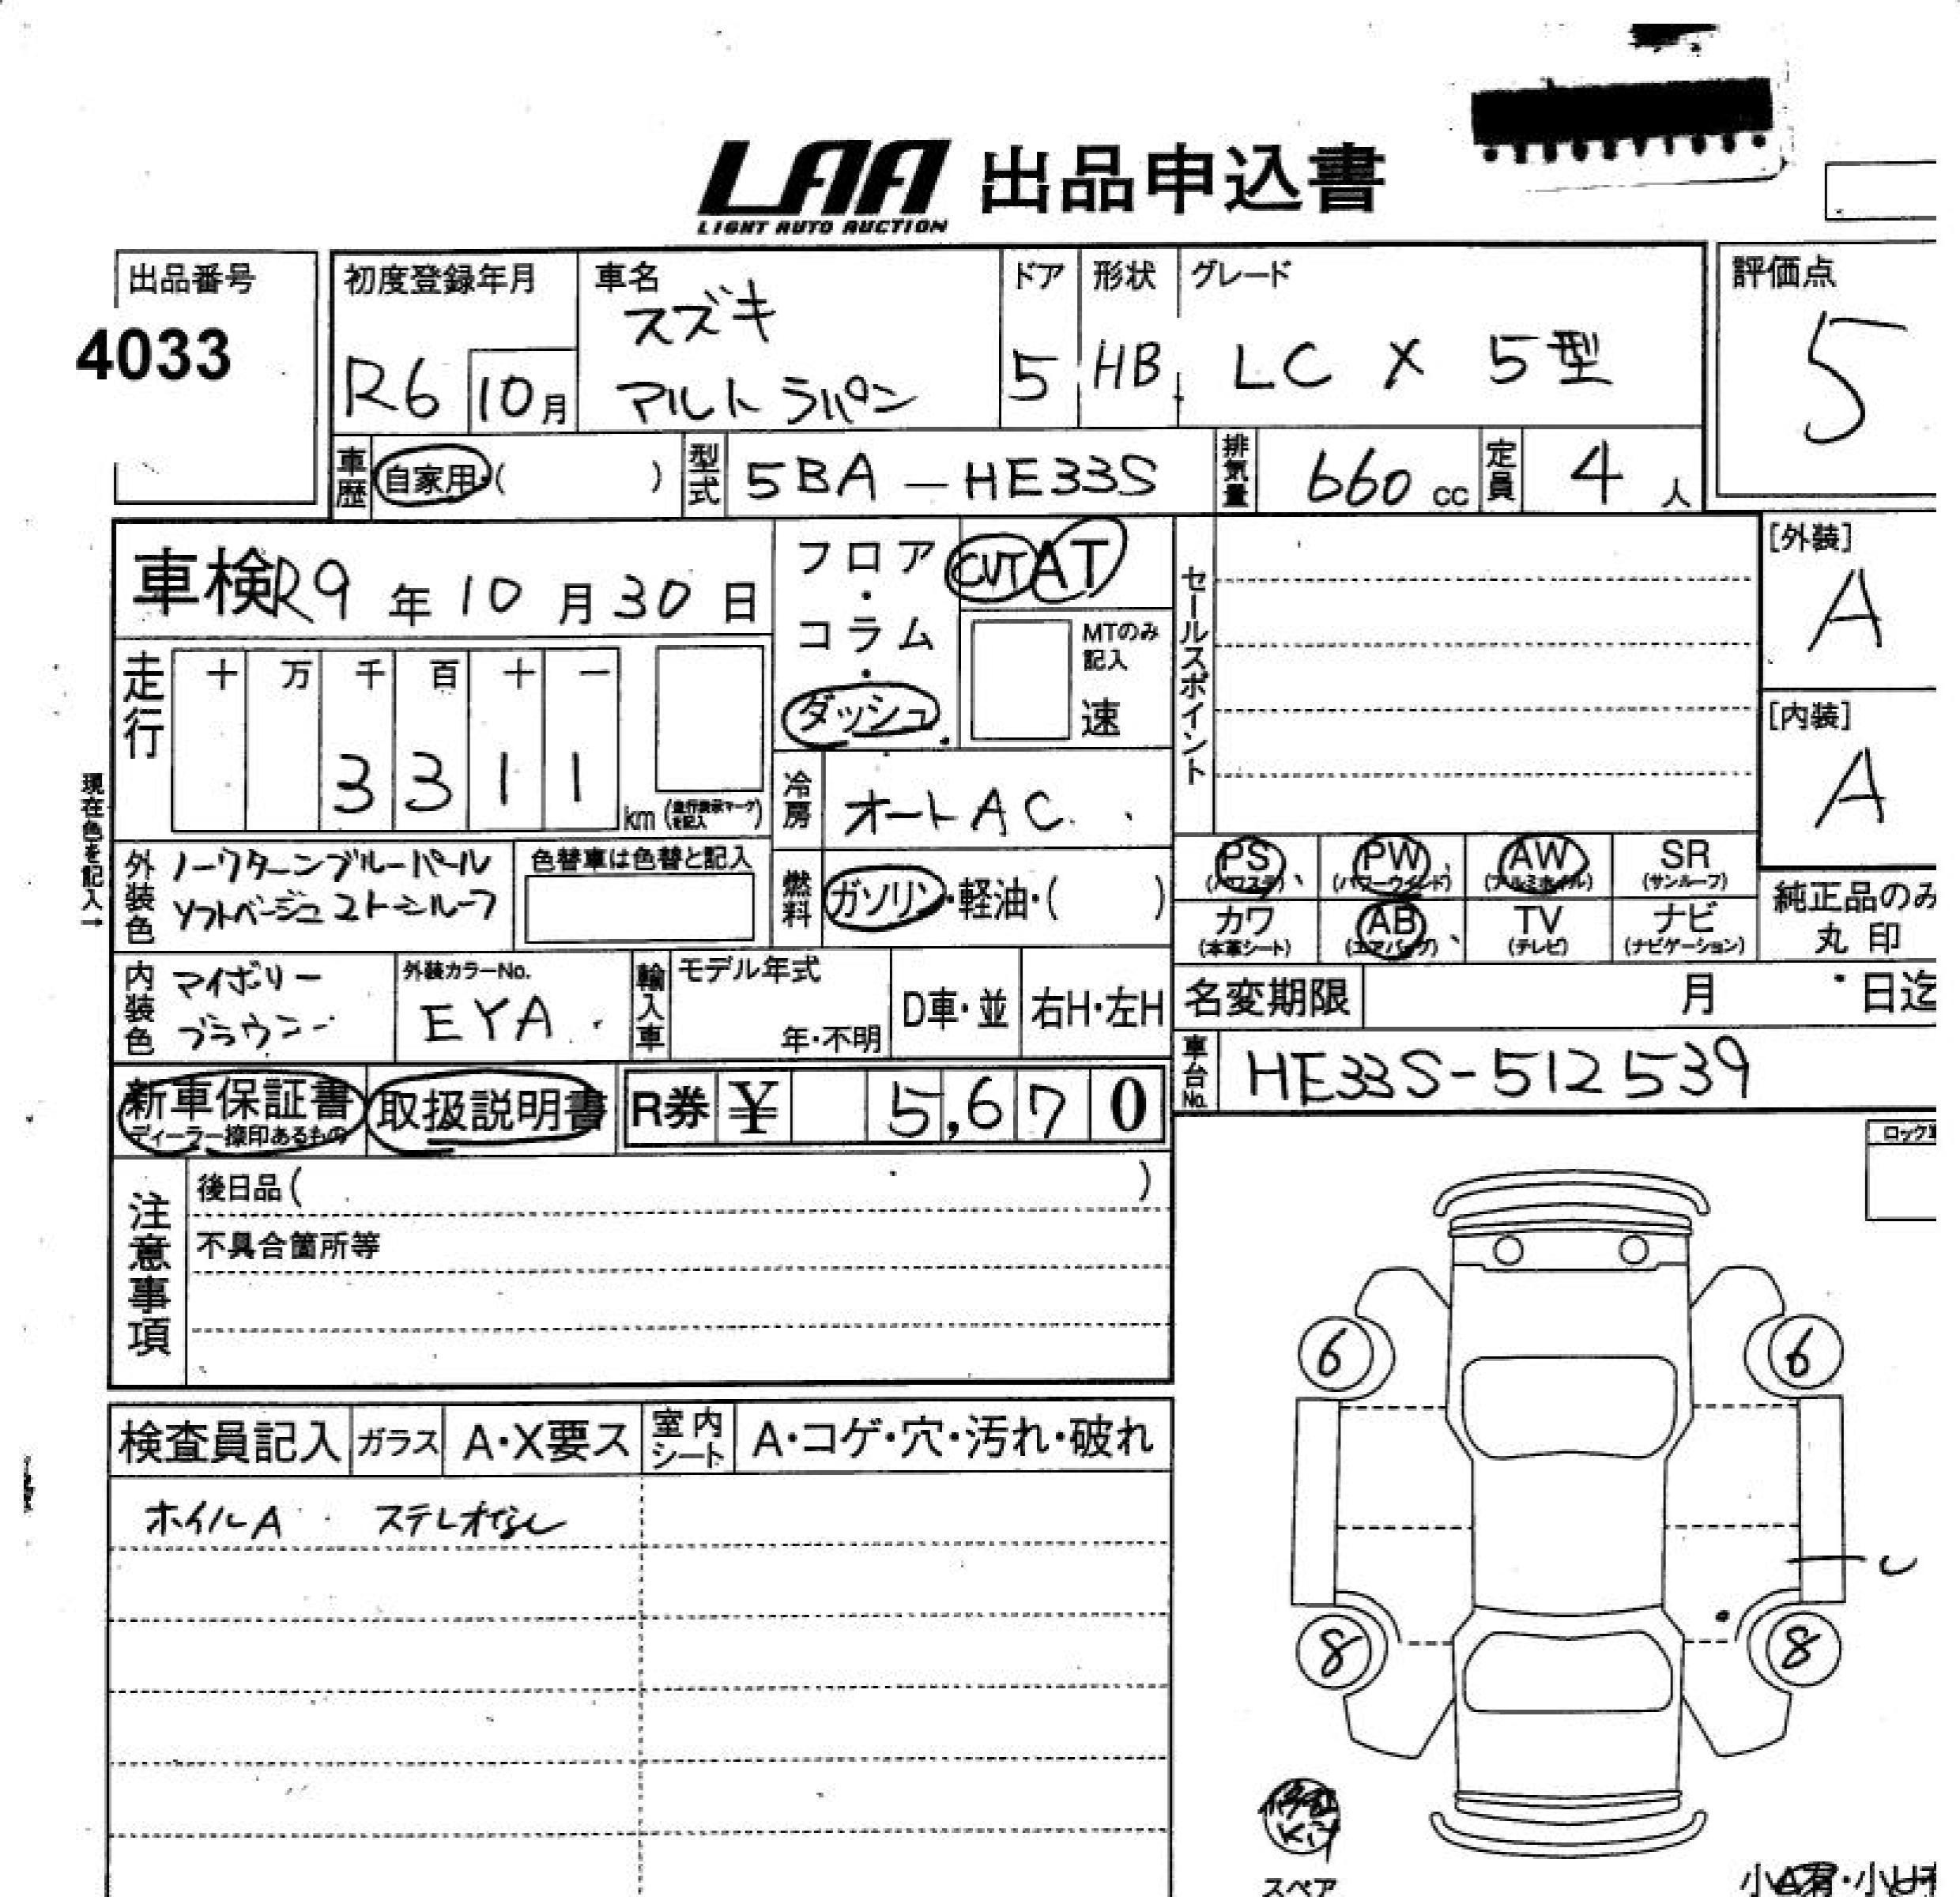 LAA 出品申込書
LIGHT AUTO AUCTION
出品番号
4033
初度登録年月
R6 10月
車名
スズキ
アルトラパン
ドア
5
形状
HB
グレード
LC X 5型
評価点
5
車歴 自家用・( )
型式 5BA-HE33S
排気量 660 cc
定員 4 人
車検 R9年10月30日
フロア・コラム・ダッシュ
CVT AT
MTのみ記入
速
セールスポイント
[外装]
A
[内装]
A
走行
十 万 千 百 十 一
3 3 1 1
km (走行表示マークを記入)
冷房 オートAC
現在色を記入→
外装色 ノークターンブルーパール
ソフトベージュ2トーンルーフ
色替車は色替と記入
燃料 ガソリン・軽油・( )
PS (パワステ)
PW (パワーウインド)
AW (アルミホイル)
SR (サンルーフ)
カワ (本革シート)
AB (エアバッグ)
TV (テレビ)
ナビ (ナビゲーション)
純正品のみ
丸印
内装色 アイボリー
ブラウン
外装カラーNo.
EYA
輸入車
モデル年式
年・不明
D車・並
右H・左H
名変期限 月 日迄
車台No. HE33S-512539
新車保証書
ディーラー捺印あるもの
取扱説明書
R券 ¥ 5,670
ロック
注意事項
後日品( )
不具合箇所等
検査員記入
ガラス A・X要ス
室内シート A・コゲ・穴・汚れ・破れ
ホイルA ステレオなし
6
6
8
8
修理
Kit
スペア